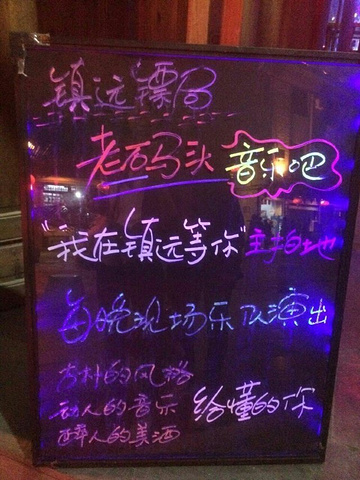 镇远"镖局
老石码头 音乐吧
"我在镇远等你"主拍地
每晚现场乐队演出
古朴的风格
动人的音乐
醉人的美酒
给懂的你